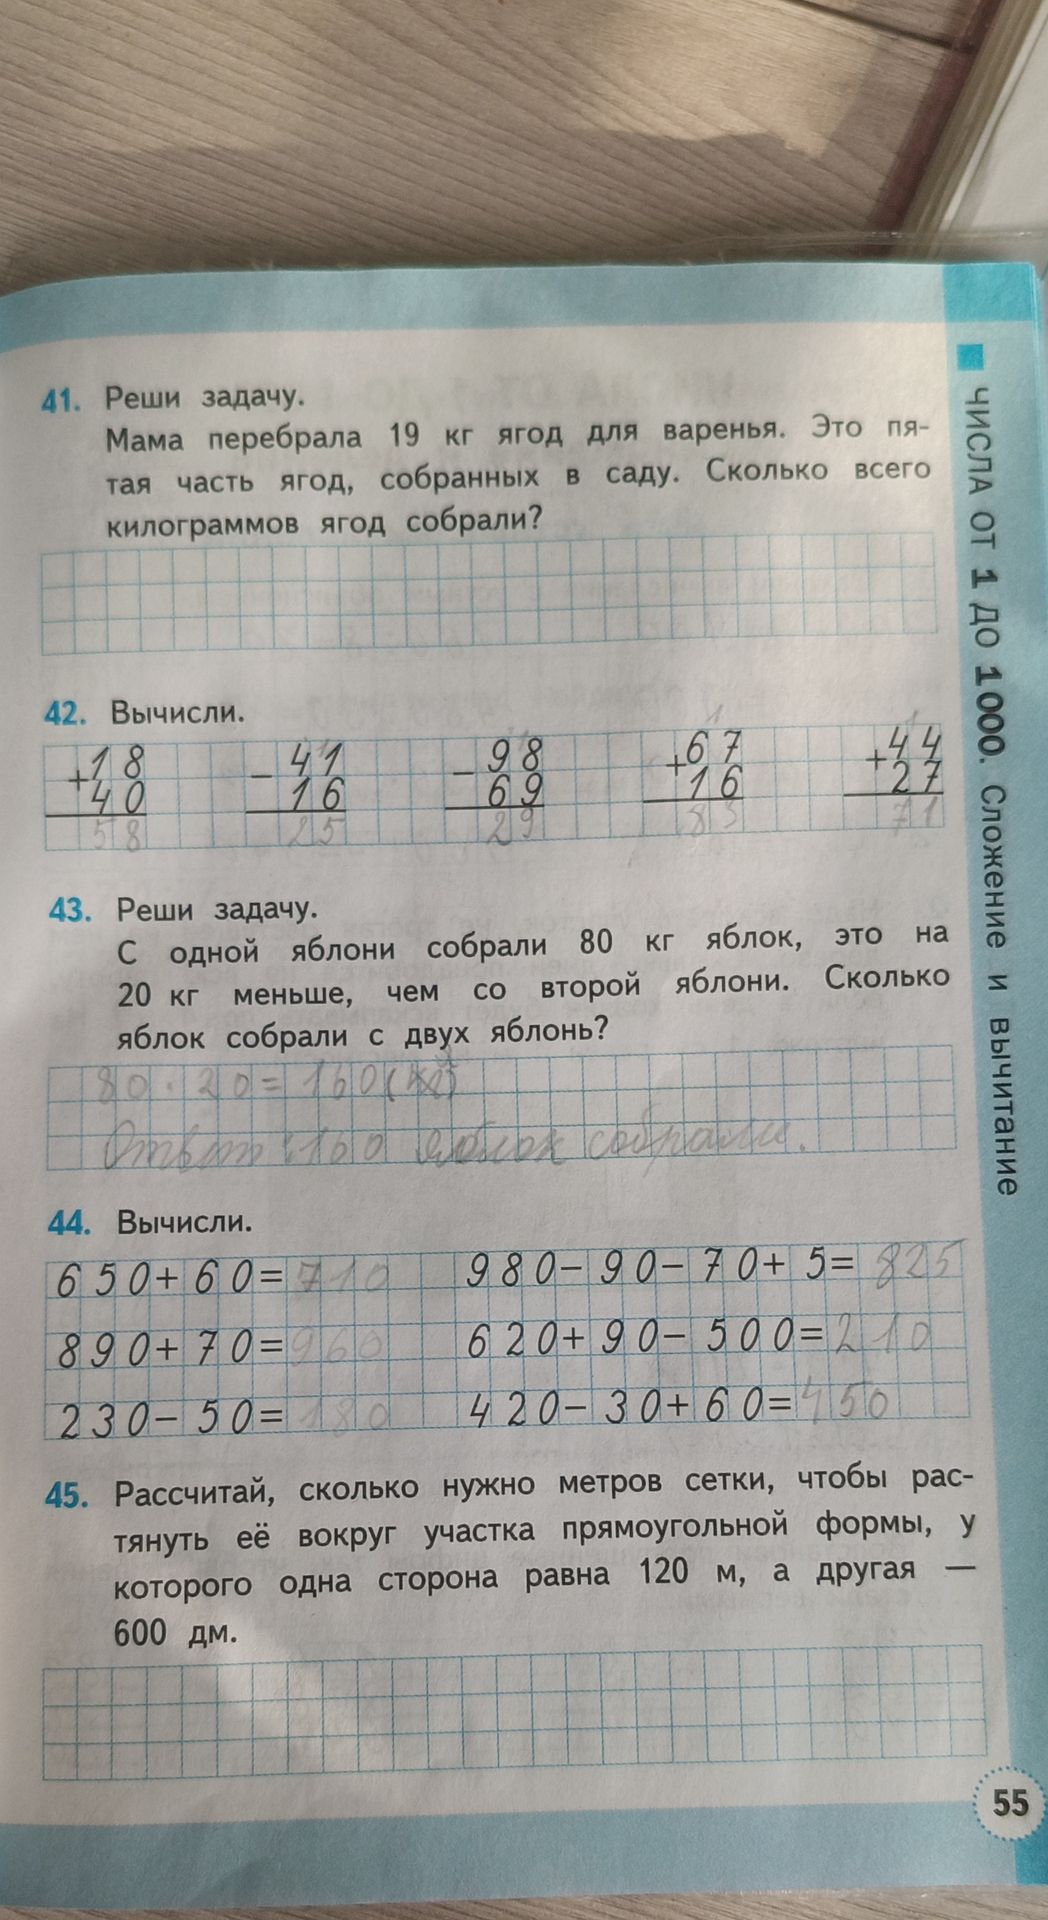 41. Реши задачу.
Мама перебрала 19 кг ягод для варенья. Это пя-
тая часть ягод, собранных в саду. Сколько всего
килограммов ягод собрали?
42. Вычисли.
+18 −41 −98 +67 +44
40 16 69 16 27
58 25 29 83 71
43. Реши задачу.
С одной яблони собрали 80 кг яблок, это на
20 кг меньше, чем со второй яблони. Сколько
яблок собрали с двух яблонь?
80 · 20 = 160 (кг)
Ответ: 160 яблок собрали.
44. Вычисли.
650+60=710 980−90−70+5=825
890+70=960 620+90−500=210
230−50=180 420−30+60=450
45. Рассчитай, сколько нужно метров сетки, чтобы рас-
тянуть её вокруг участка прямоугольной формы, у
которого одна сторона равна 120 м, а другая —
600 дм.
55
ЧИСЛА ОТ 1 ДО 1000. Сложение и вычитание